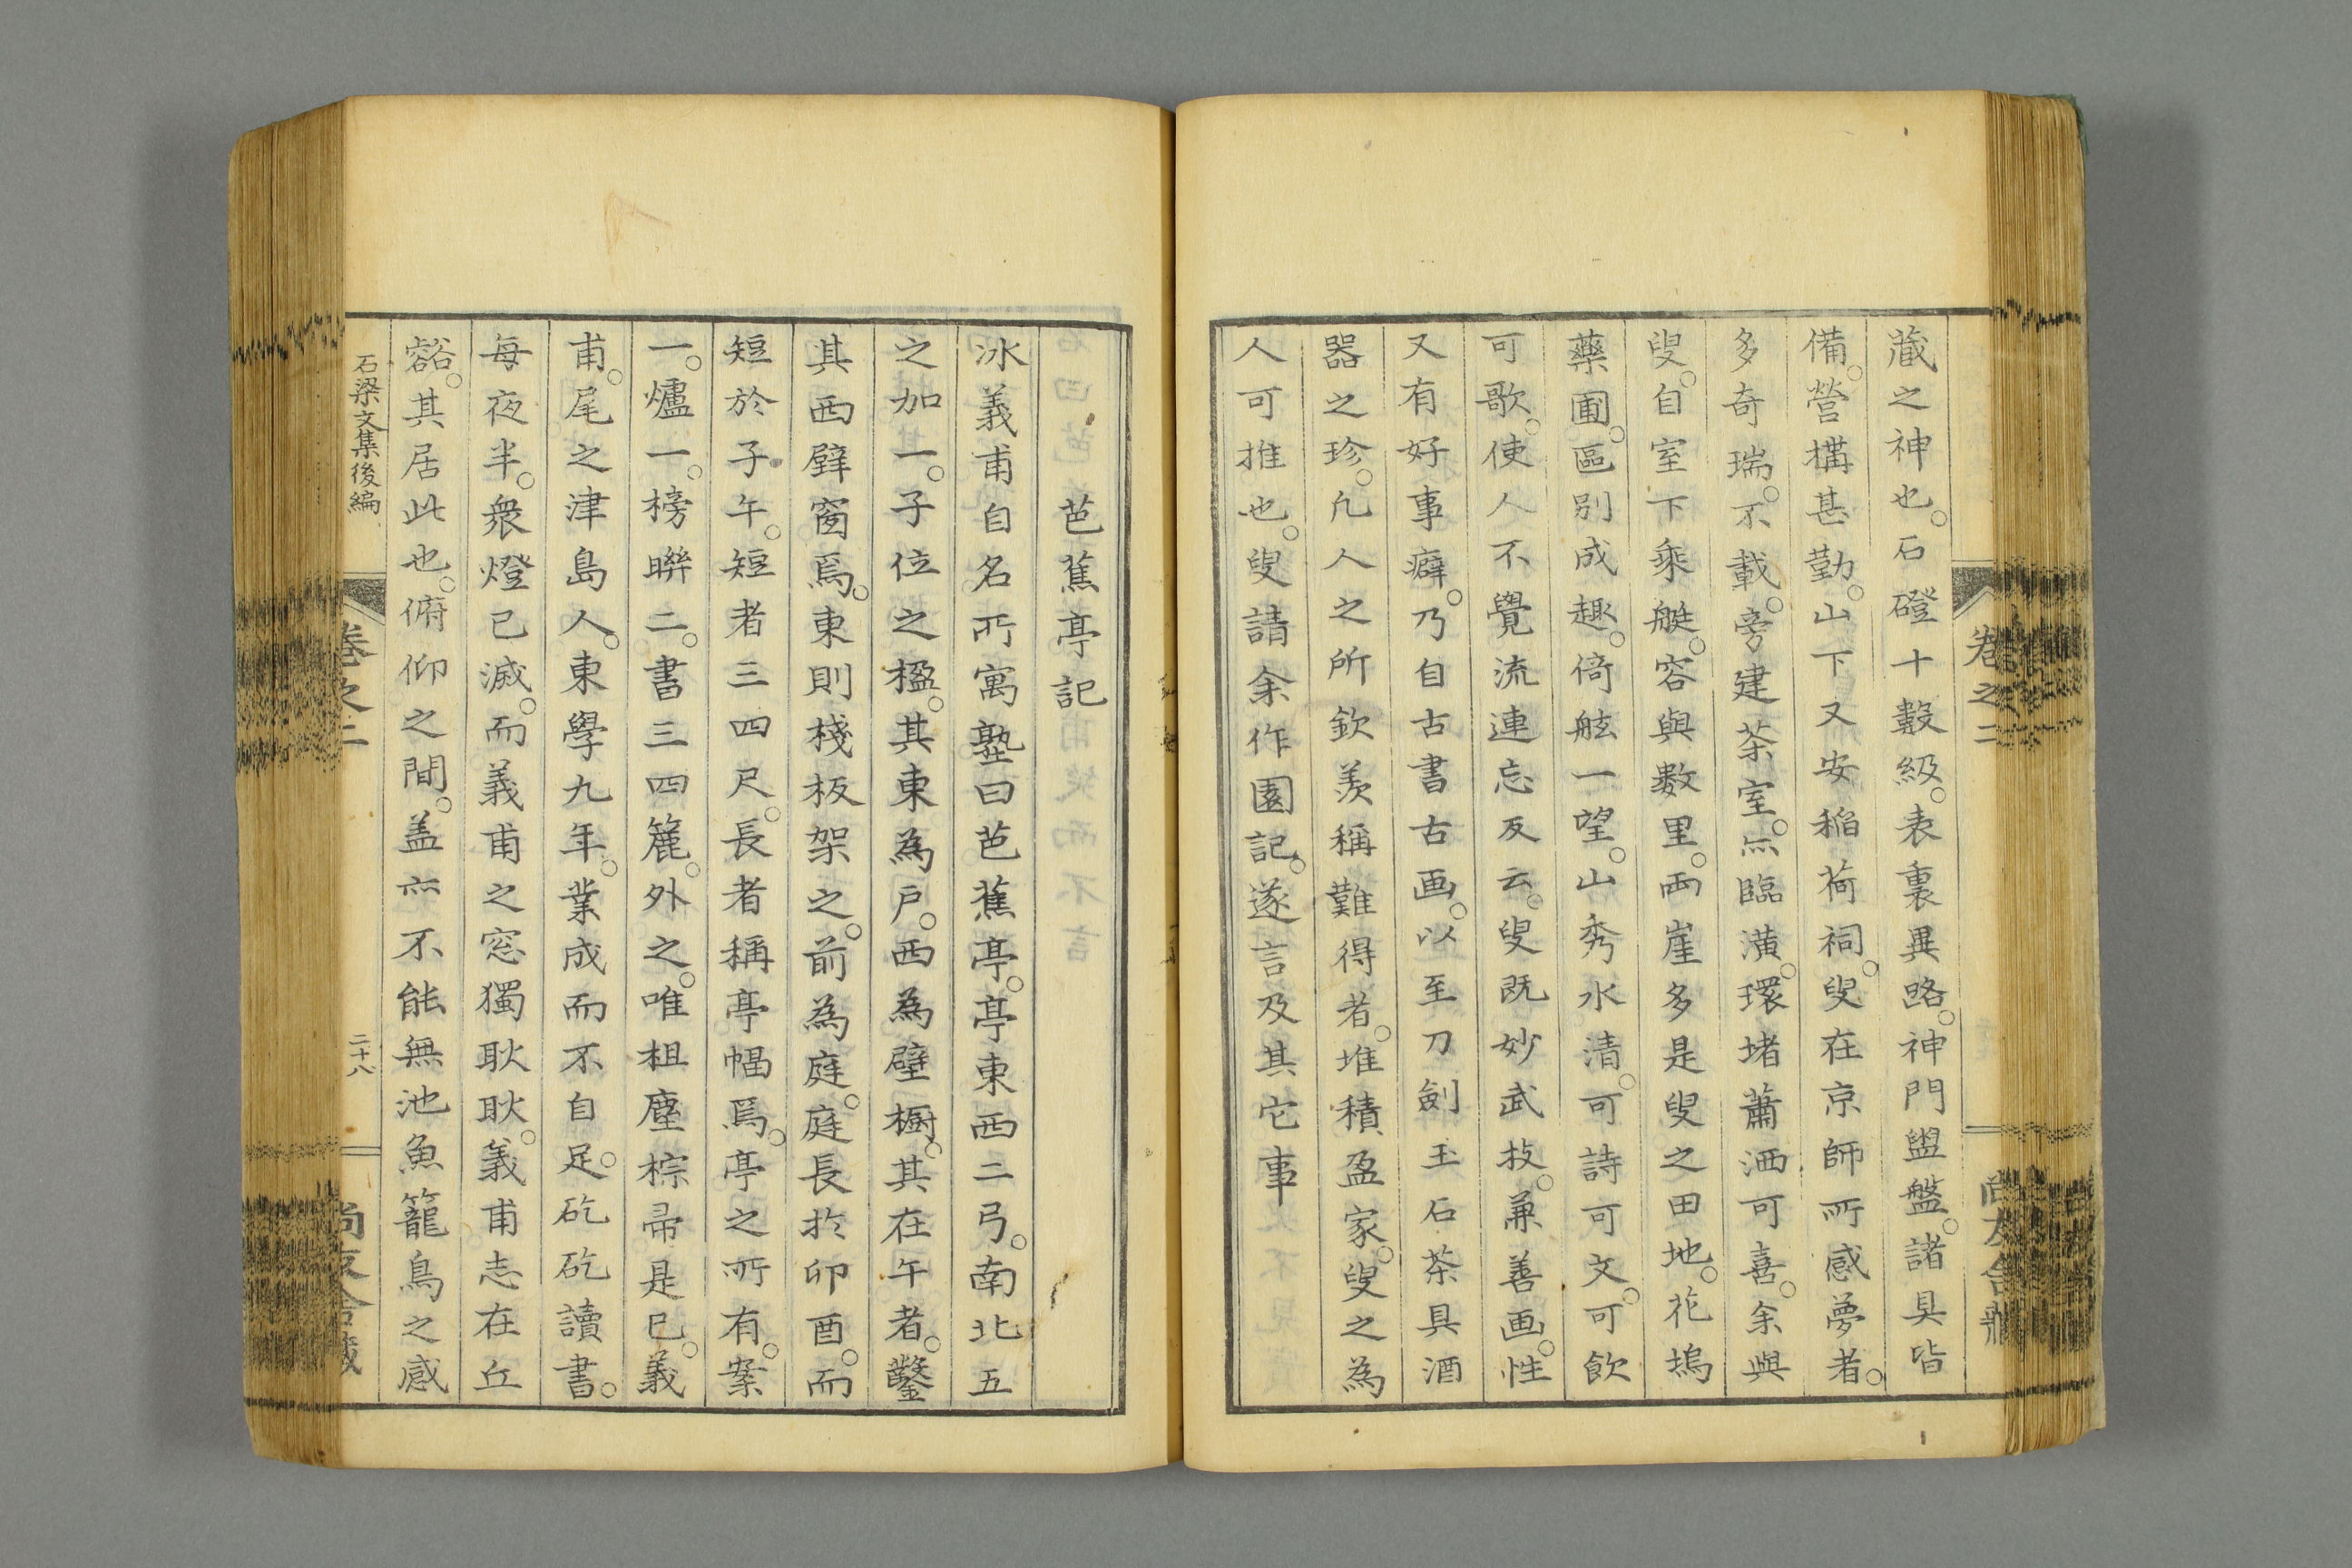 藏之神也。石磴十數級。表裏異路。神門盥盤。諸具皆
備。營構甚勤。山下又安稲荷祠。叟在京師所感夢者。
多奇瑞。不載。旁建茶室。亦臨潢。環堵蕭洒可喜。余與
叟。自室下乘艇。容與數里。兩崖多是叟之田地。花塢
藥圃。區别成趣。倚舷一望。山秀水清。可詩可文。可飲
可歌。使人不覺流連忘反云。叟既妙武技。兼善画。性
又有好事癖。乃自古書古画。以至刀劍玉石茶具酒
器之珍。凡人之所欽羨稱難得者。堆積盈家。叟之為
人可推也。叟請余作園記。遂言及其它事
卷之二
芭蕉亭記
冰義甫自名所寓塾曰芭蕉亭。亭東西二弓。南北五
之加一。子位之楹。其東為戶。西為壁櫥。其在午者。鑿
其西壁窗焉。東則棧板架之。前為庭。庭長於卯酉。而
短於子午。短者三四尺。長者稱亭幅焉。亭之所有。案
一。爐一。榜聯二。書三四簏。外之。唯柤塵棕帚是已。義
甫。尾之津島人。東學九年。業成而不自足。矻矻讀書。
每夜半。衆燈已滅。而義甫之窓獨耿耿。義甫志在丘
谿。其居此也。俯仰之間。盖亦不能無池魚籠鳥之感
石梁文集後編
卷之二
二十八